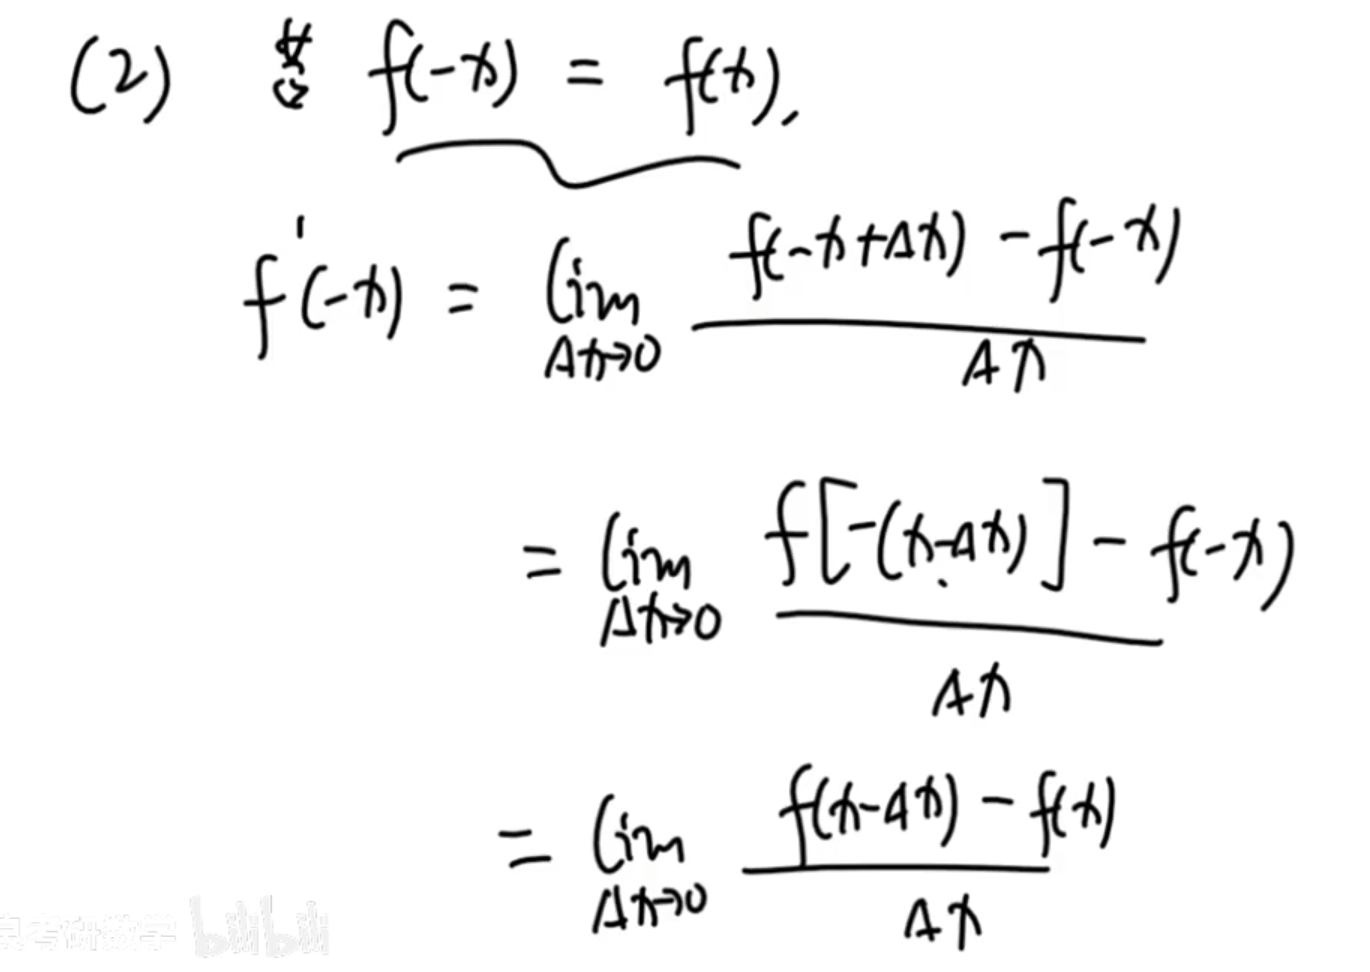 (2) f(-x) = f(x),
f'(-x) = lim Δx→0 f(-x+Δx) - f(-x) / Δx
= lim Δx→0 f[-(x-Δx)] - f(-x) / Δx
= lim Δx→0 f(x-Δx) - f(x) / Δx
考研数学 bilibili